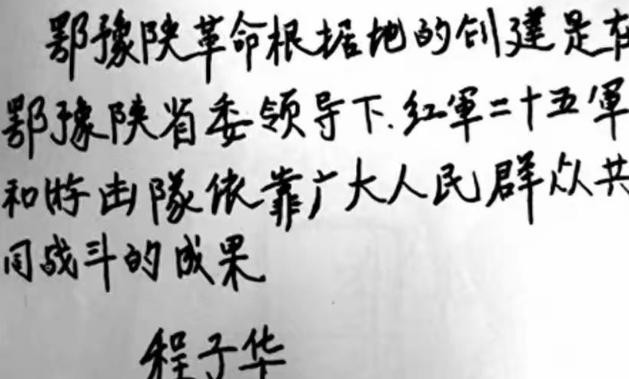 鄂豫陕革命根据地的创建是在
鄂豫陕省委领导下.红軍二十五軍
和游击隊依靠广大人民群众共
同战斗的成果
程子华